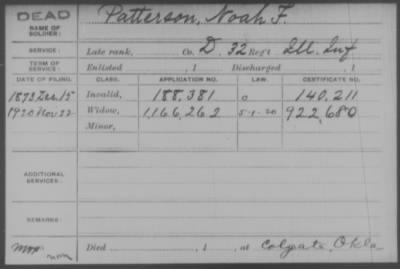 DEAD
NAME OF SOLDIER: Patterson, Noah F.
SERVICE: Late rank, Co. D, 32 Reg't Ill. Inf
TERM OF SERVICE: Enlisted , 1 Discharged , 1
DATE OF FILING. CLASS. APPLICATION NO. LAW. CERTIFICATE NO.
1873 Dec. 15 Invalid, 188,381 0 140,211
1920 Nov 22 Widow, 1,166,262 5-1-20 922,680
Minor,
ADDITIONAL SERVICES:
REMARKS:
Died , 1 , at Colgate, Okla